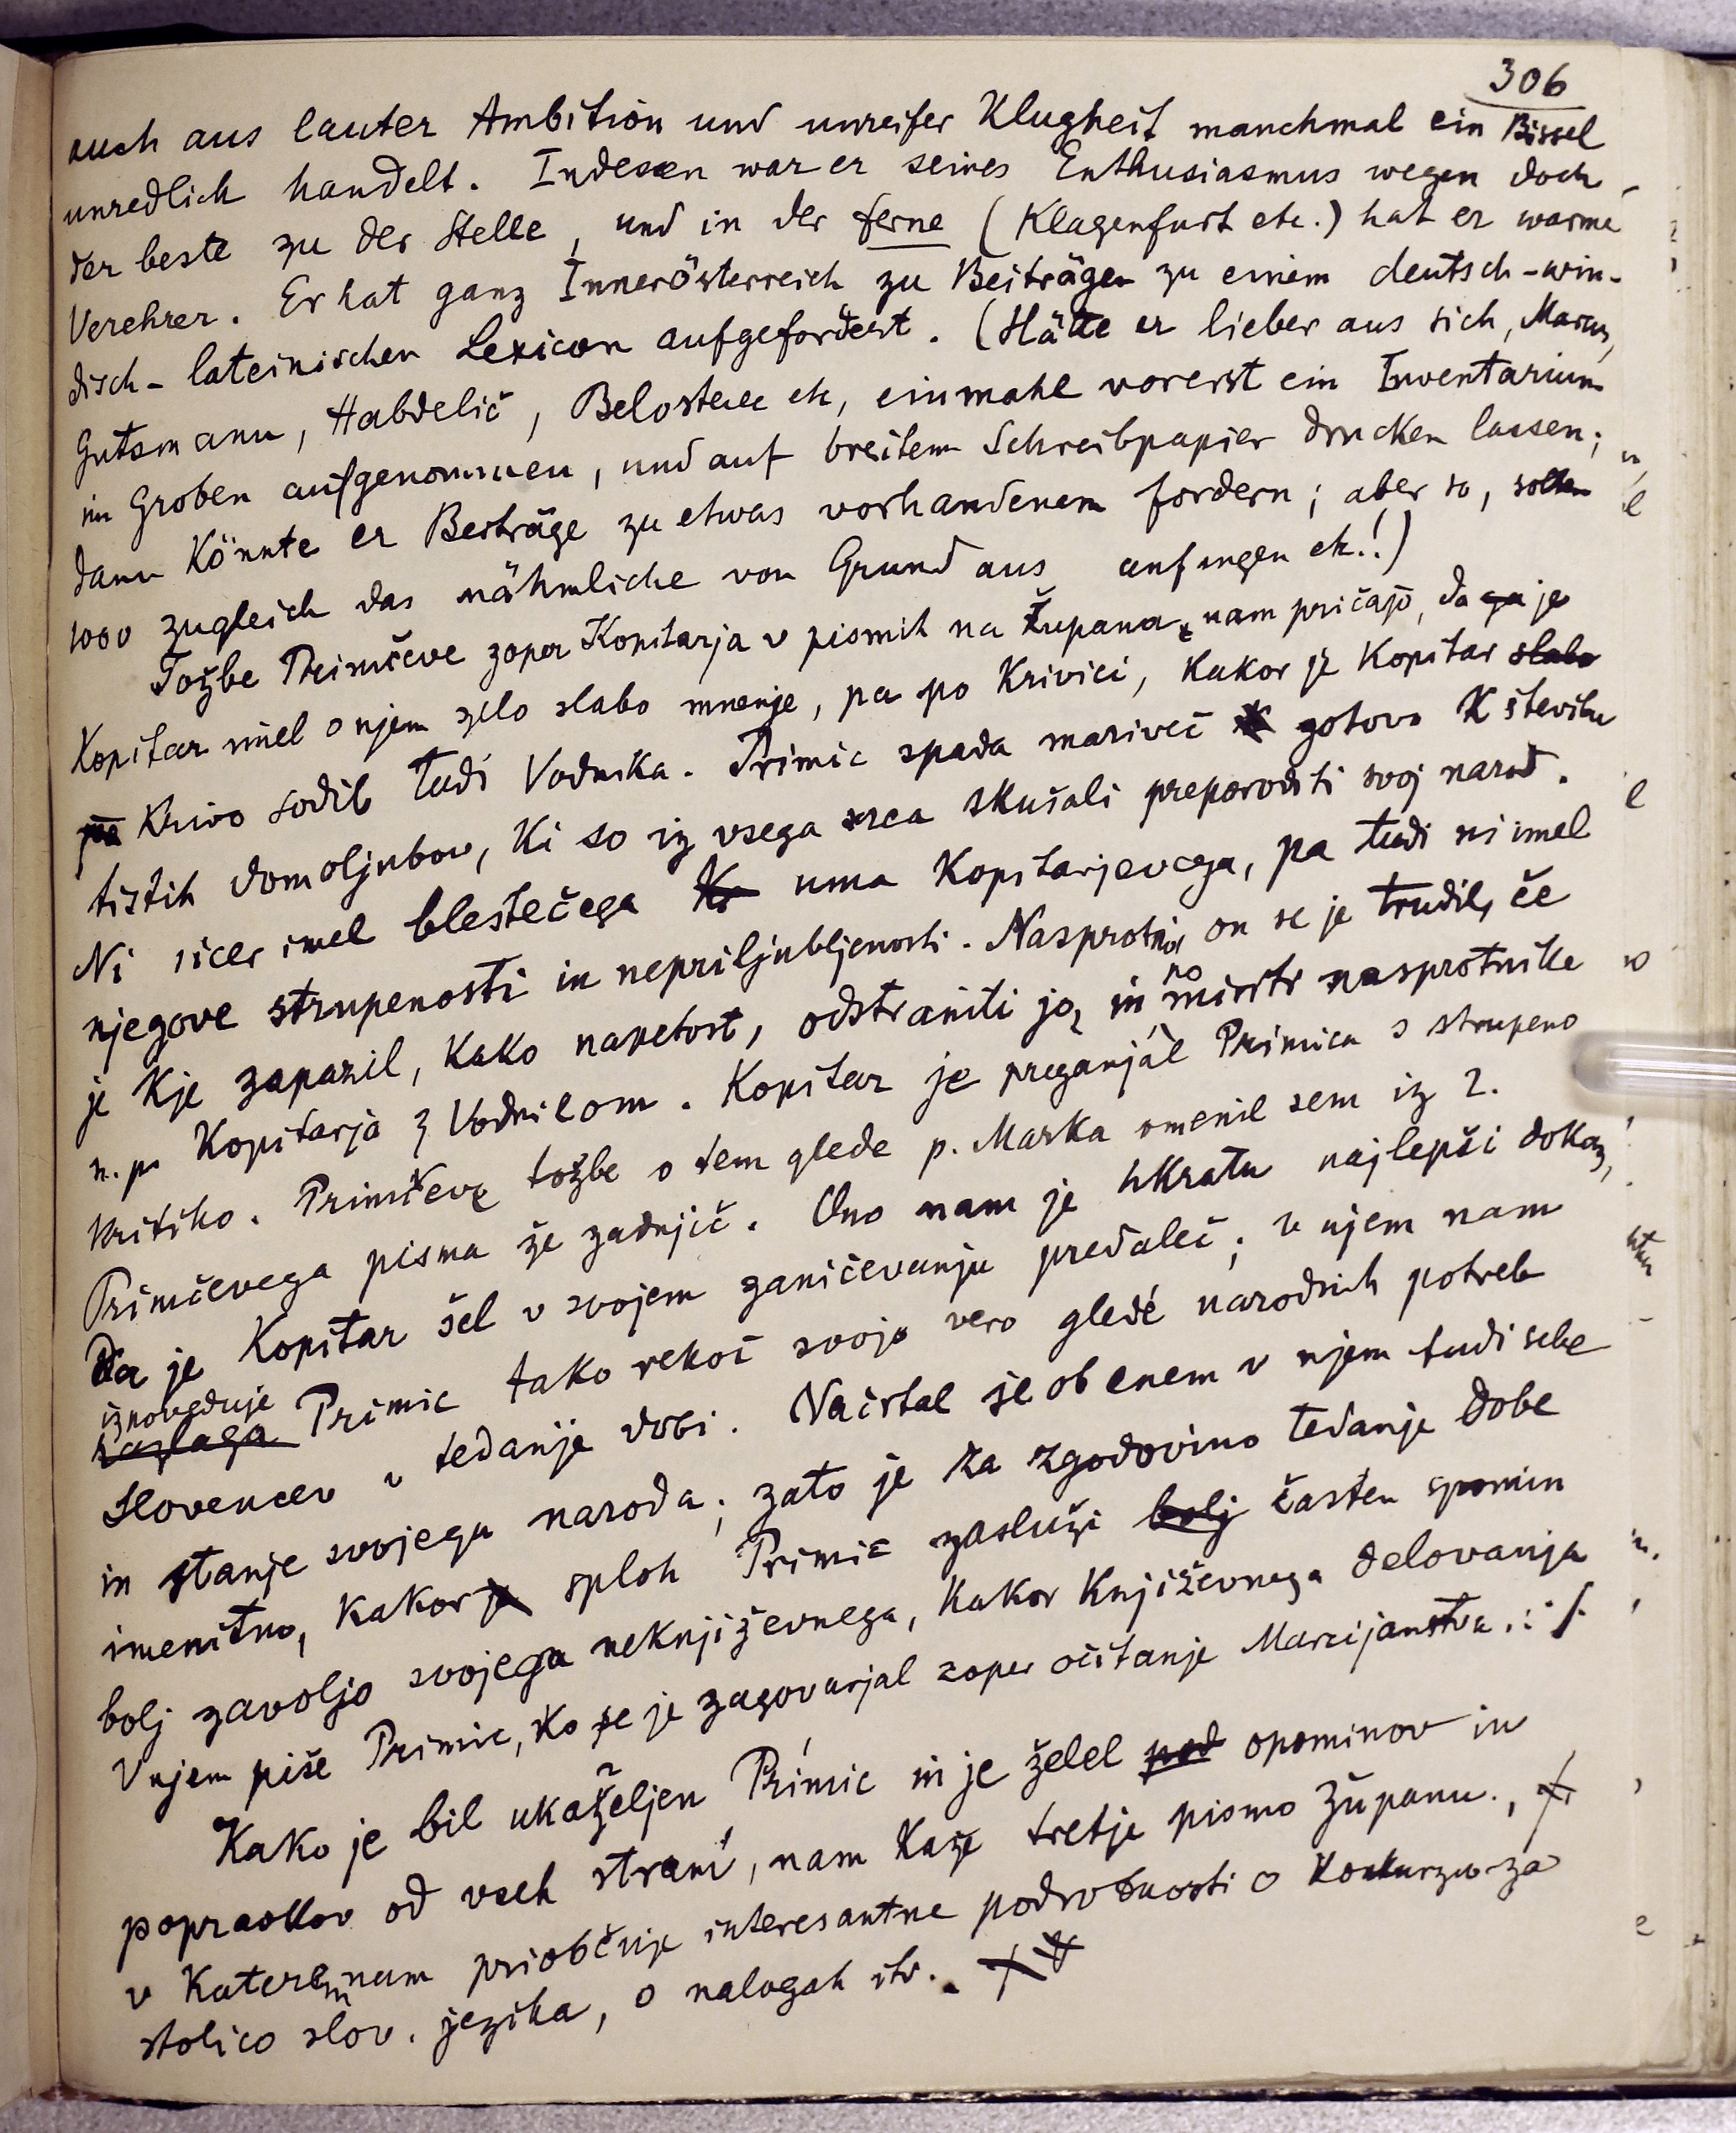 306
auch aus lauter Ambition und unreifer Klugheit manchmal ein Bissel
unredlich handelt. Indessen war er seines Enthusiasmus wegen doch
der beste zu der Stelle, und in der ferne (Klagenfurt etc.) hat er warme
Verehrer. Er hat ganz Innerösterreich zu Beiträgen zu einem deutsch-win-
disch-lateinischen Lexicon aufgefordert. (Hätte er lieber aus sich, Marcus,
Gutsmann, Habdelič, Belostenec etc, einmahl vorerst ein Inventarium
im Groben aufgenommen, und auf breitem Schreibpapier drucken lassen;
dann könnte er Beiträge zu etwas vorhandenem fordern; aber so, sollen
1000 zugleich das nähmliche von Grund aus anfangen etc.!)
Tožbe Primčeve zoper Kopitarja v pismih na Župana nam pričajo, da ga je
Kopitar imel o njem zelo slabo mnenje, pa po krivici, kakor je Kopitar slabo
pa krivo sodil tudi Vodnika. Primic spada marveč gotovo k številu
tistih domoljubov, ki so iz vsega srca skušali preporoditi svoj narod.
Ni sicer imel blestečega Ko uma Kopitarjevega, pa tudi ni imel
njegove strupenosti in nepriljubljenosti. Nasprotno on se je trudil, če
je kje zapazil, kako napetost, odstraniti jo, in
no
mirstr nasprotnike
n. pr Kopitarja z Vodnikom. Kopitar je preganjal Primica s strupeno
kritiko. Primčeve tožbe o tem glede p. Marka omenil sem iz 2.
Primčevega pisma že zadnjič. Ono nam je hkratu najlepši dokaz,
Da je Kopitar šel v svojem zaničevanju predaleč; v njem nam
izpoveduje
razlaga Primic tako rekoč svojo vero gledé narodnih potreb
Slovencev v tedanje dobi. Načrtal je ob enem v njem tudi sebe
in stanje svojega naroda; zato je za zgodovino tedanje dobe
imenitno, kakor je sploh Primic zasluži bolj časten spomin
bolj zavoljo svojega neknjiževnega, kakor književnega delovanja
V njem piše Primic, ko se je zagovarjal zoper očitanje Marcijanstva.: /.
Kako je bil ukaželjen Primic in je želel pod opominov in
popravkov od vseh strani, nam kaže tretje pismo Županu.,
v katerem nam priobčuje interesantne podrobnosti o konkurzu za
stolico slov. jezika, o nalogah itd.